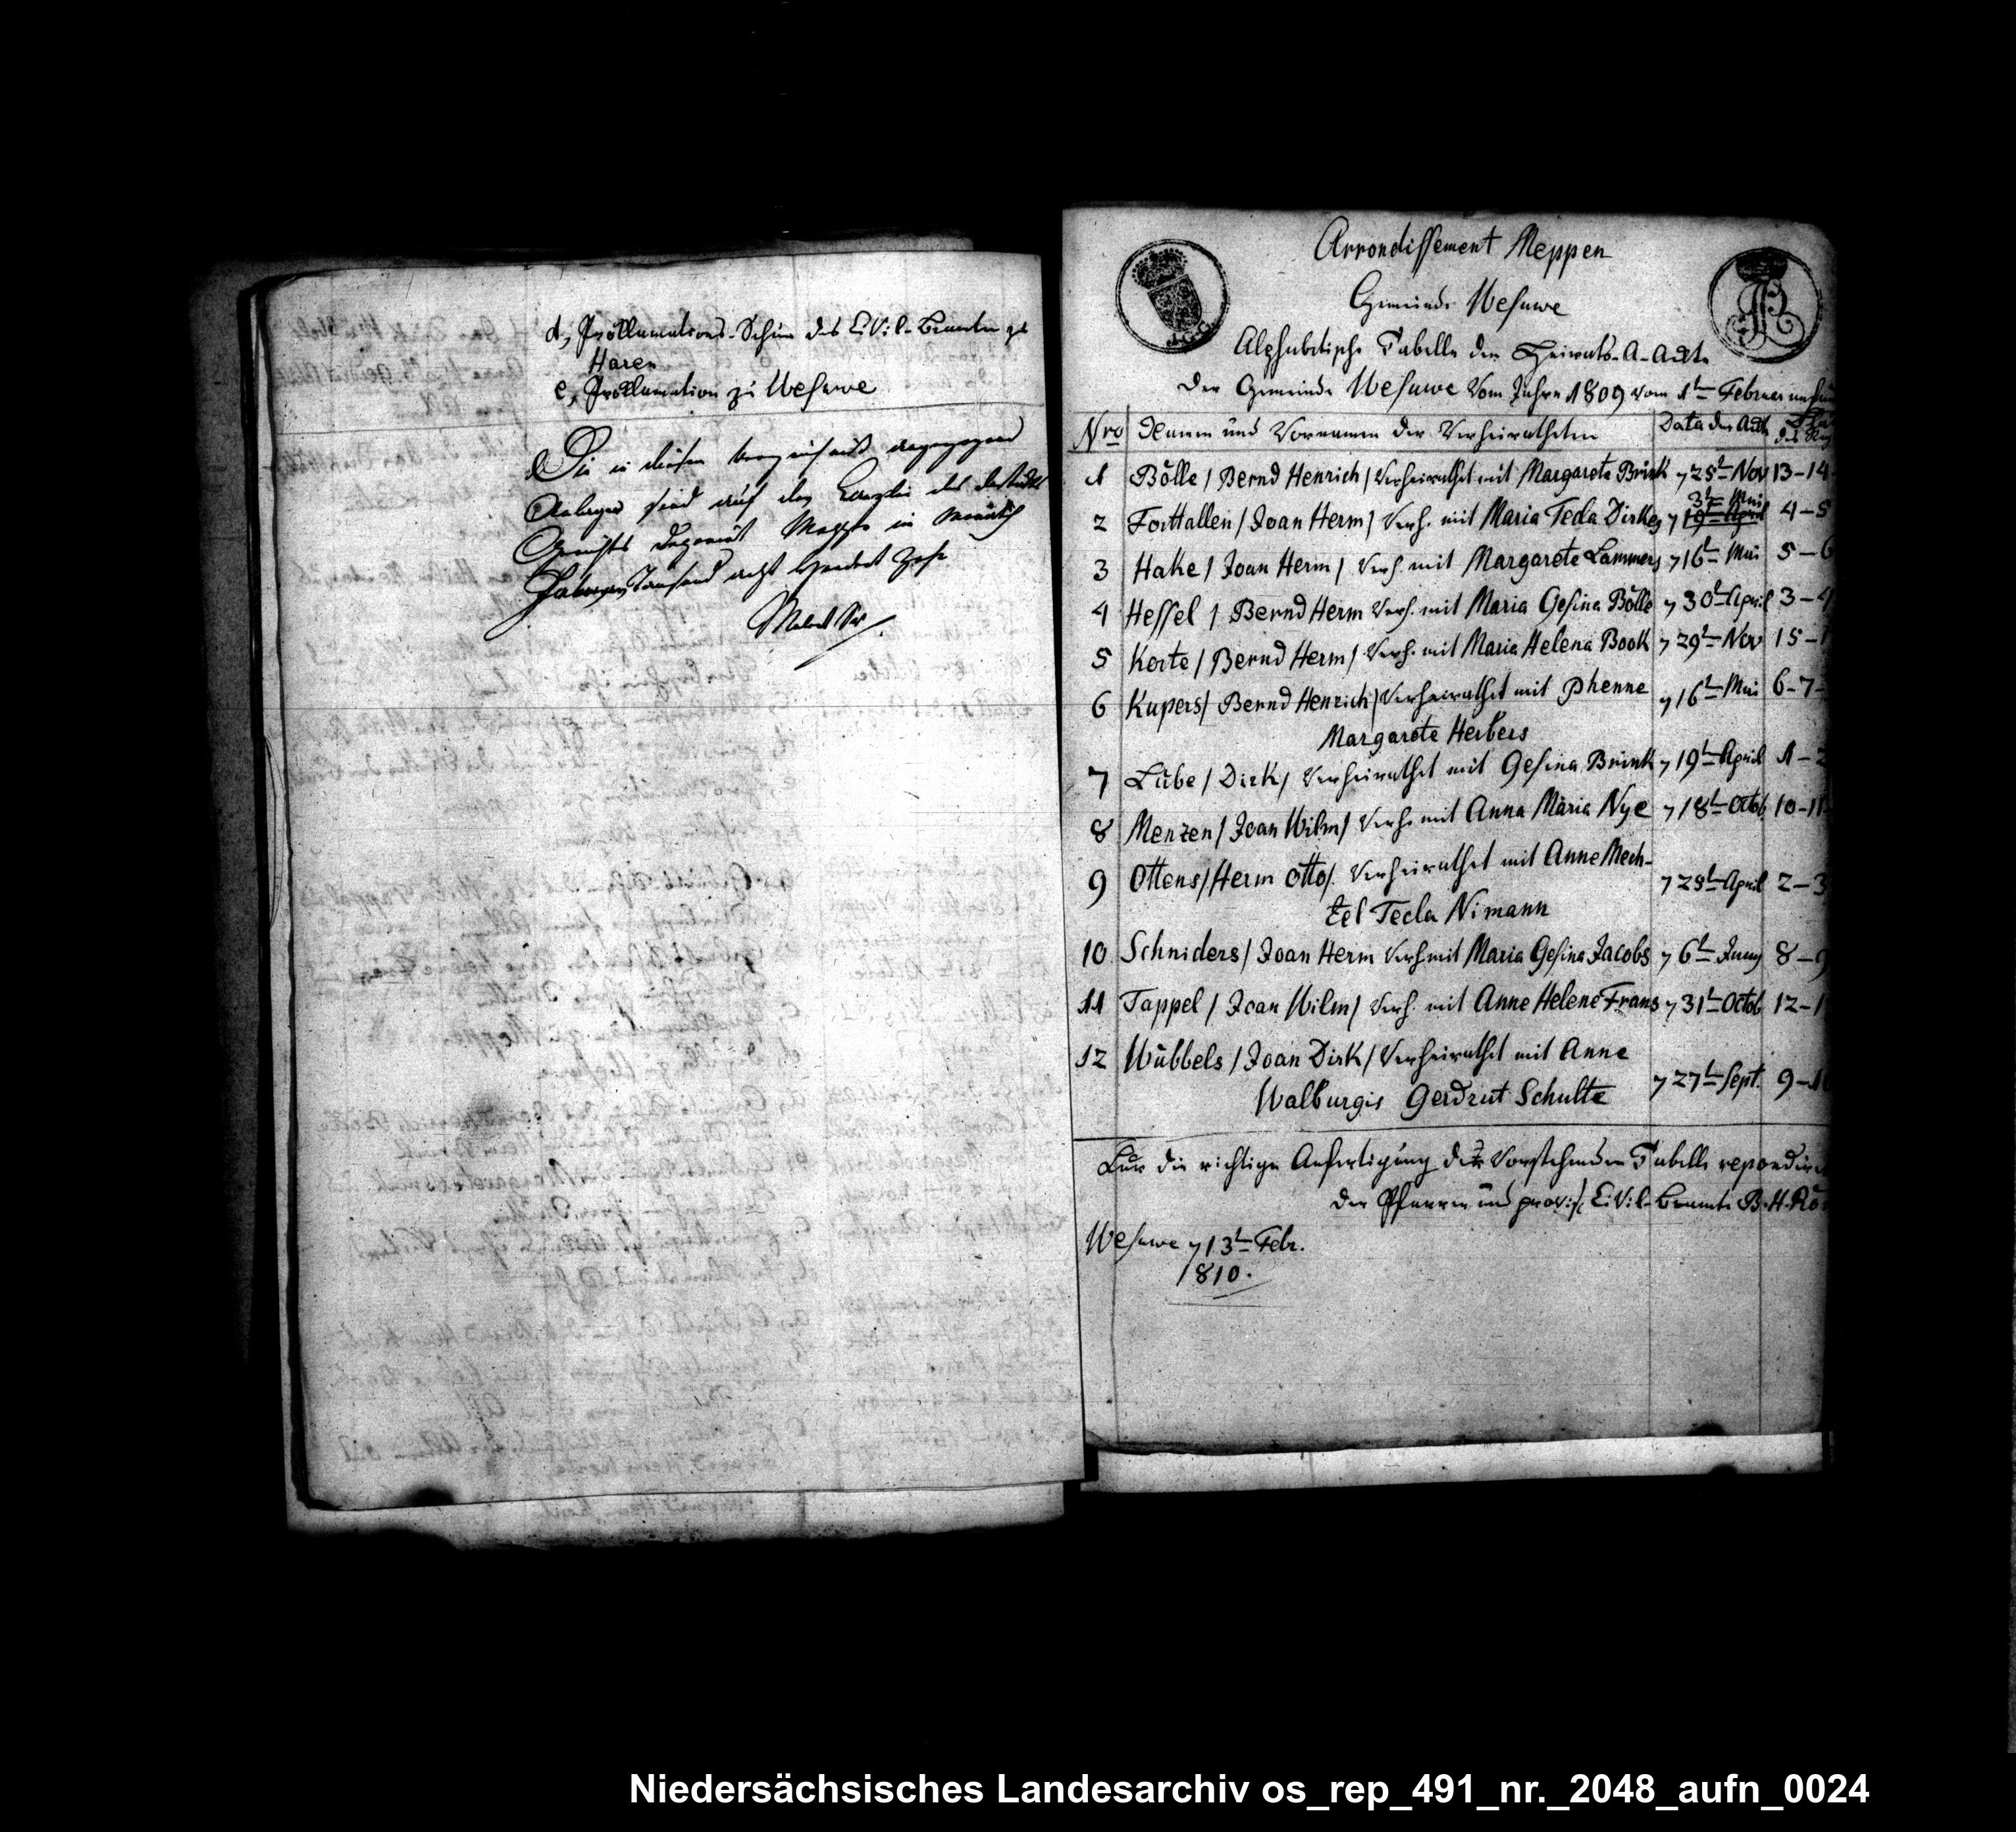 d, Proklamations-Schein des Civil-Beamten zu
Haren
e, Proklamation zu Wesuwe
Die in diesem
sind auf der Canzlei des
Gerichts Meppen in
Tausend acht Hundert Zehn
Arrondissement Meppen
Gemeinde Wesuwe
Alphabetische Tabelle der Heirats-A-Acte
der Gemeinde Wesuwe vom Jahre 1809 vom 1t Februar
Nro Namen und Vornamen der Verheiratheten Data der Acte
1 Bölle / Bernd Henrich / Verheirathet mit Margarete Brink 25t Nov 13-14
3t Mai
2 Forttallen / Joan Herm / Verh. mit Maria Tecla Dirkes 19t April 4-5
3 Hake / Joan Herm / Verh. mit Margarete Lammers 16t Mai 5-6
4 Hessel / Bernd Herm Verh. mit Maria Gesina Bölle 30t April 3-4
5 Korte / Bernd Herm / Verh. mit Maria Helena Book 29t Nov 15-1
6 Kupers / Bernd Henrich / Verheirathet mit Phenne 16t Mai 6-7
Margarete Herbers
7 Lübe / Dirk / Verheirathet mit Gesina Brink 19t April 1-2
8 Menzen / Joan Wilm / Verh. mit Anna Maria Nye 18t Octob 10-11
9 Ottens / Herm Otto / Verheirathet mit Anne Mech- 25t April 2-3
tel Tecla Nimann
10 Schniders / Joan Herm Verh mit Maria Gesina Jacobs 6t Juny 8-9
11 Tappel / Joan Wilm / Verh. mit Anne Helene Frans 31t Octob 12-1
12 Wübbels / Joan Dirk / Verheirathet mit Anne
Walburgis Gerdrut Schulte 27t Sept. 9-10
Für die richtige Anfertigung der Vorstehenden Tabelle
der Pfarrer und provis. Civil-Beamte B. H.
Wesuwe 13t Febr.
1810.
Niedersächsisches Landesarchiv os_rep_491_nr._2048_aufn_0024